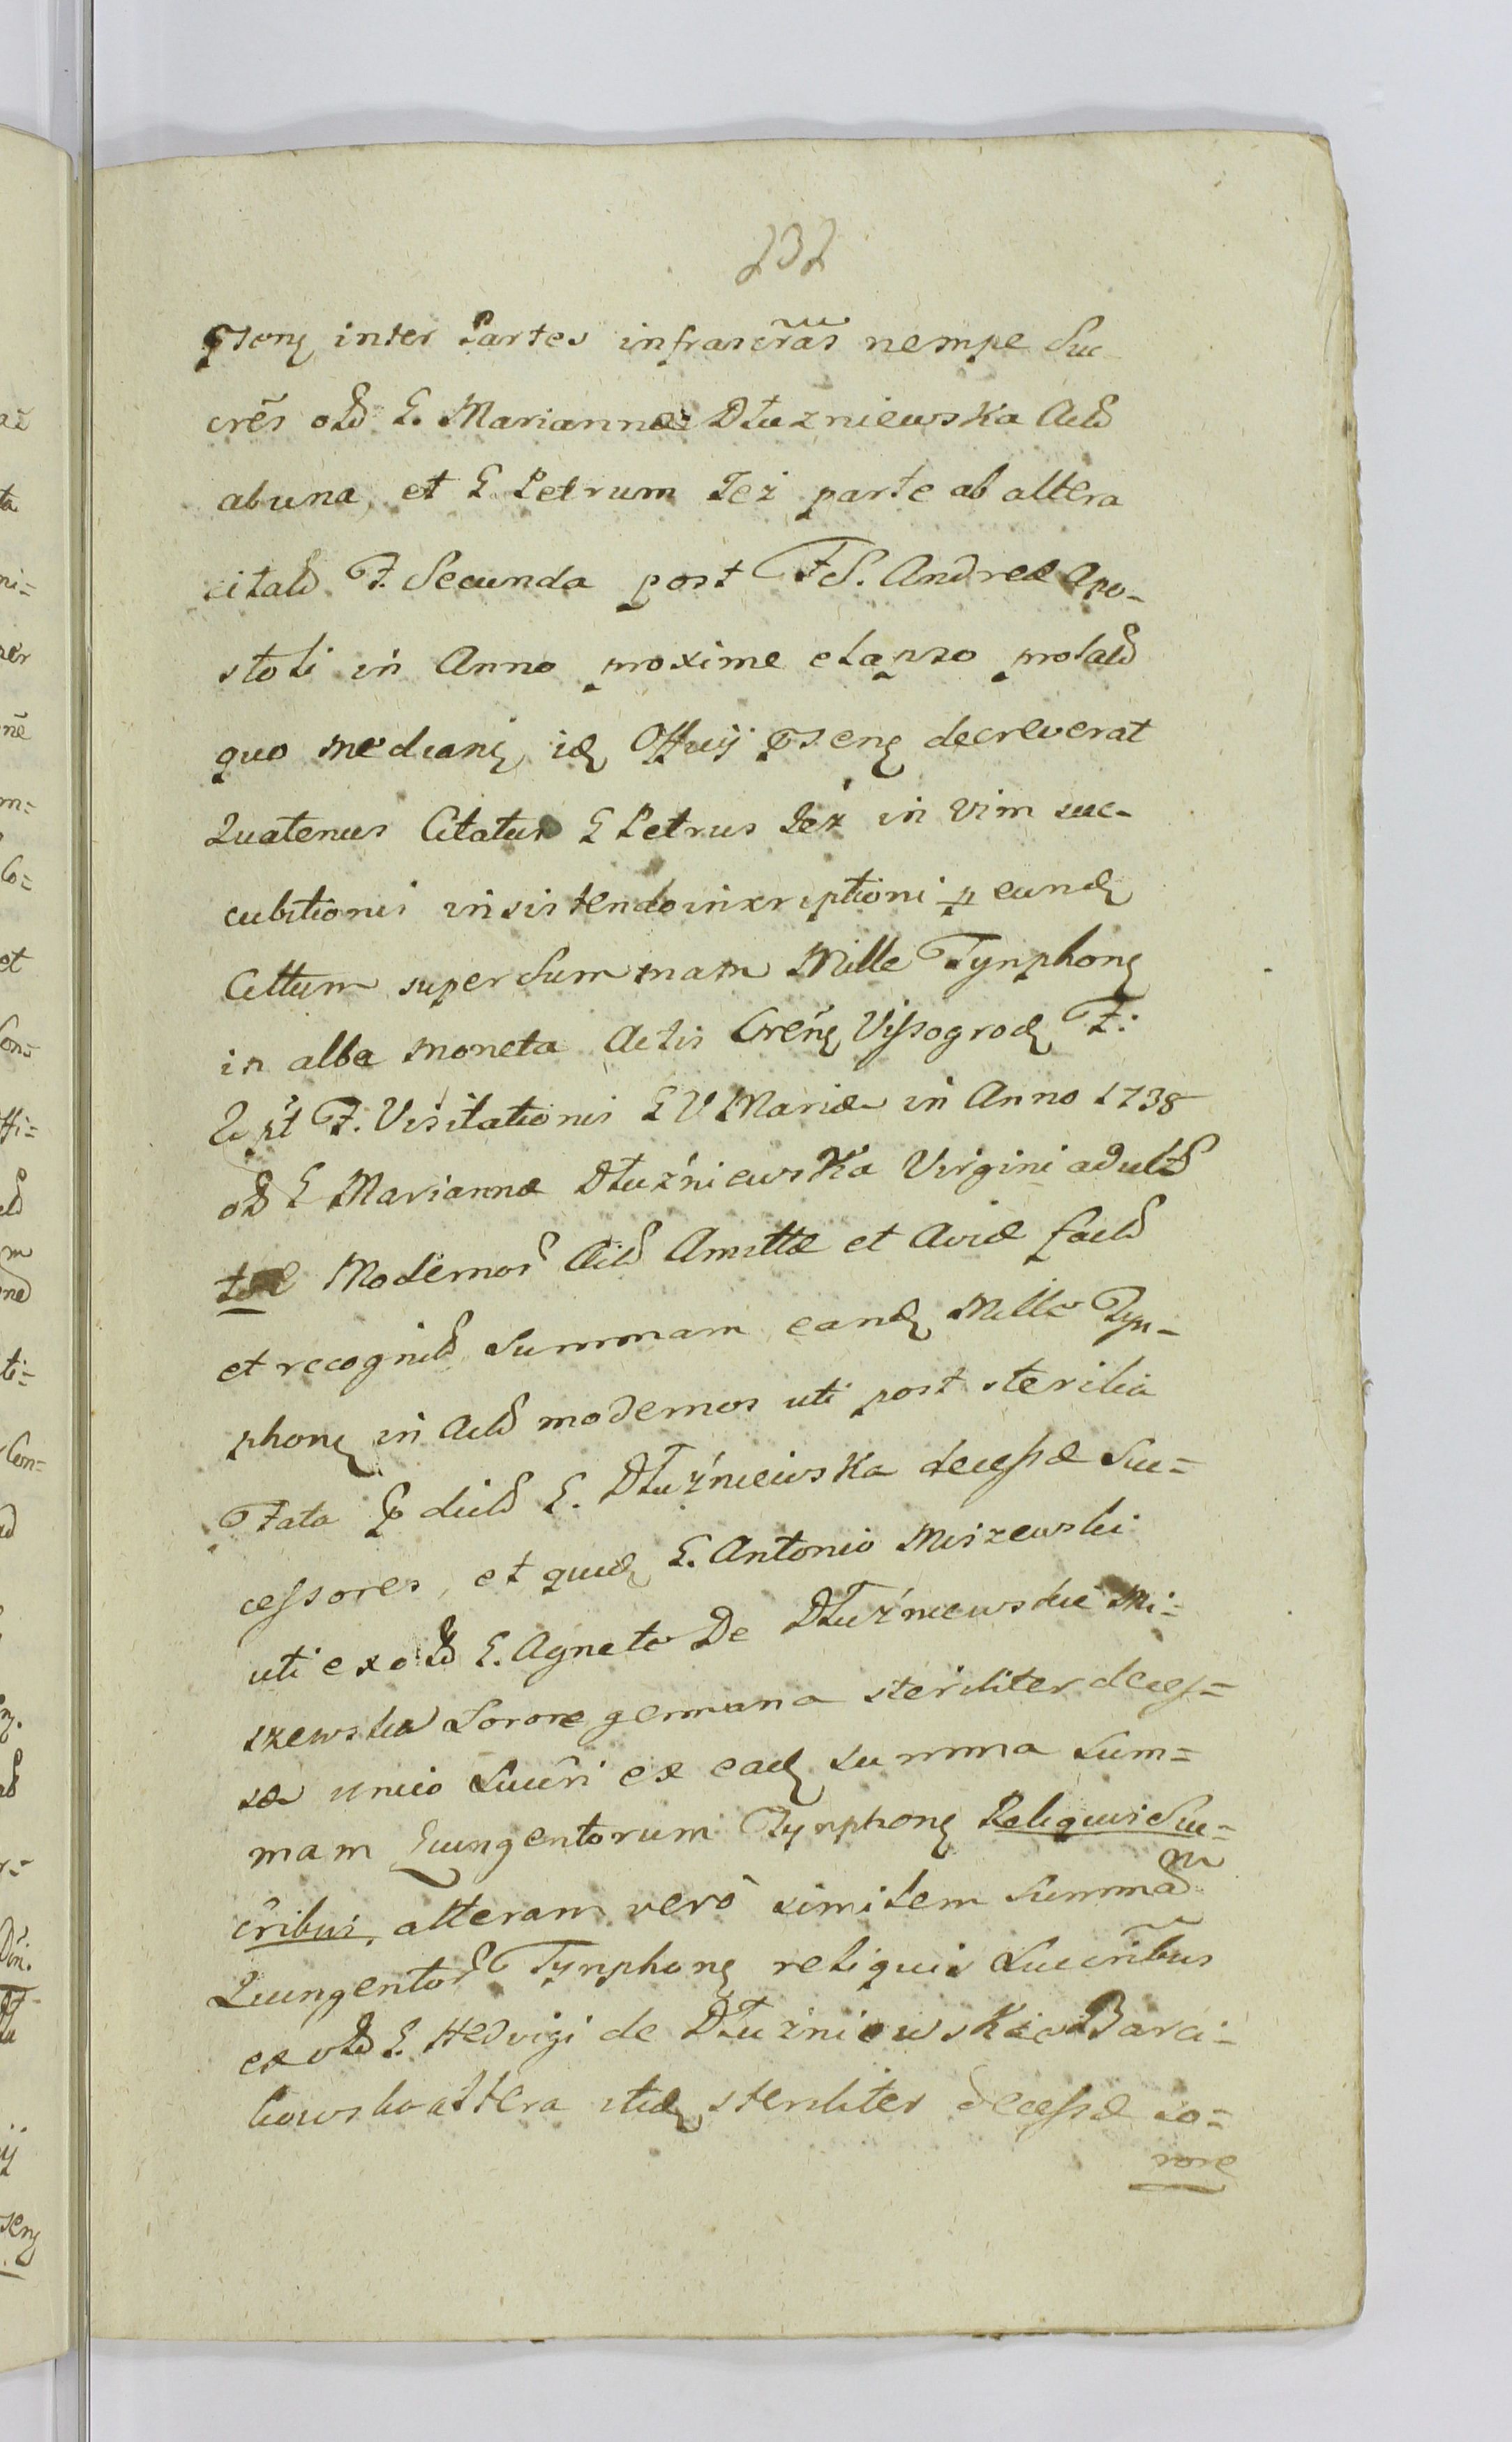 232
Psens inter Partes infrascr̃as nempe Suc-
crẽs olđ G. Mariannæ Dłuzniewska Actđ
ab una, et G. Petrum Jeż parte ab altera
citatđ F. Secunda post F S. Andreæ Apo-
stoli in Anno proxime elapso prolatđ
quo median, idę Offiij Psens decreverat
Quatenus Citatus G Petrus Jeż in vim suc-
cubitionis insistendo inscriptioni p eundę
Cittum super Summam Mille Tynphonę
in alba moneta Actis Crenę Vissogrodę F:
2 pt F. Visitationis B V Mariæ in Anno 1738
olđ G Mariannæ Dłuźniewska Virgini adultđ
toæ Modernorđ Actđ Amittæ et Aviæ factđ
et recognitđ Summam eandę Mille Tyn-
phonę in Actđ modernos uti post sterilia
Fata P dictđ G. Dłuźniewska decessæ Suc=
cessores, et quidę G. Antonio Miszewski
uti ex olđ G. Agneta De Dłuźniewskie Mi=
szewska Sorore germana steriliter deces=
sa unico Succri ex eadę summa Sum=
mam Quingentorum Tynphonę Reliquis Suc=
cribus, alteram vero similem Summam
Quingentorđ Tynphonę reliquis Succribus
ex olđ G. Hedvigi de Dłuźniewskie Barci=
kowska altera itidę steriliter decessæ so=
rore